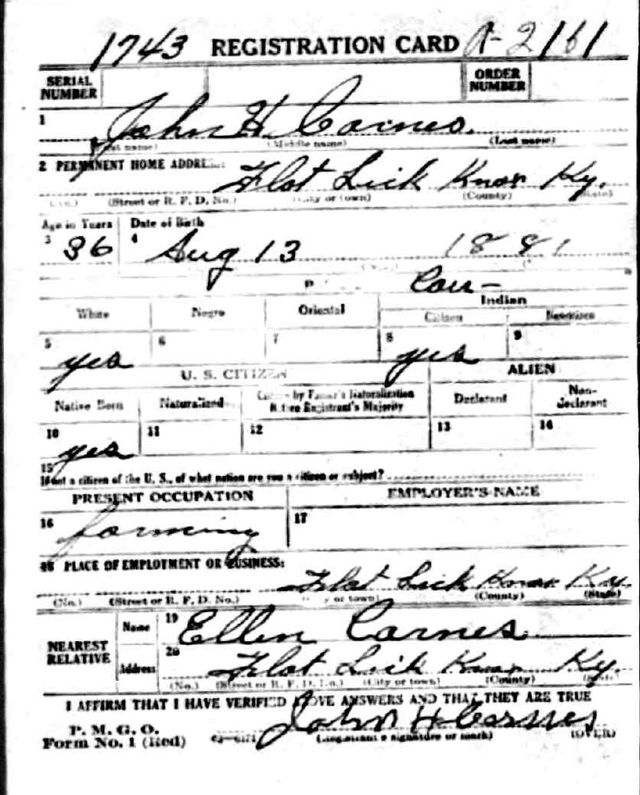 1743 REGISTRATION CARD A-2161
SERIAL NUMBER ORDER NUMBER
1 John H Carnes
(First name) (Middle name) (Last name)
2 PERMANENT HOME ADDRESS: Flat Lick Knox Ky.
(No.) (Street or R. F. D. No.) (City or town) (County) (State)
Age in Years Date of Birth
3 36 4 Aug 13 1881
Cau-
Indian
White Negro Oriental Citizen
5 yes 6 7 8 yes 9
U. S. CITIZEN ALIEN
Native Born Naturalized Citizen by Father's Naturalization Before Registrant's Majority Declarant Non-declarant
10 yes 11 12 13 14
15
If not a citizen of the U. S., of what nation are you a citizen or subject?
PRESENT OCCUPATION EMPLOYER'S NAME
16 farming 17
18 PLACE OF EMPLOYMENT OR BUSINESS:
Flat Lick Knox Ky
(No.) (Street or R. F. D. No.) (City or town) (County) (State)
NEAREST RELATIVE Name 19 Ellen Carnes
Address 20 Flat Lick Knox Ky.
(No.) (Street or R. F. D. No.) (City or town) (County) (State)
I AFFIRM THAT I HAVE VERIFIED ABOVE ANSWERS AND THAT THEY ARE TRUE
P. M. G. O.
Form No. 1 (Red) John H Carnes
(Registrant's signature or mark) (OVER)